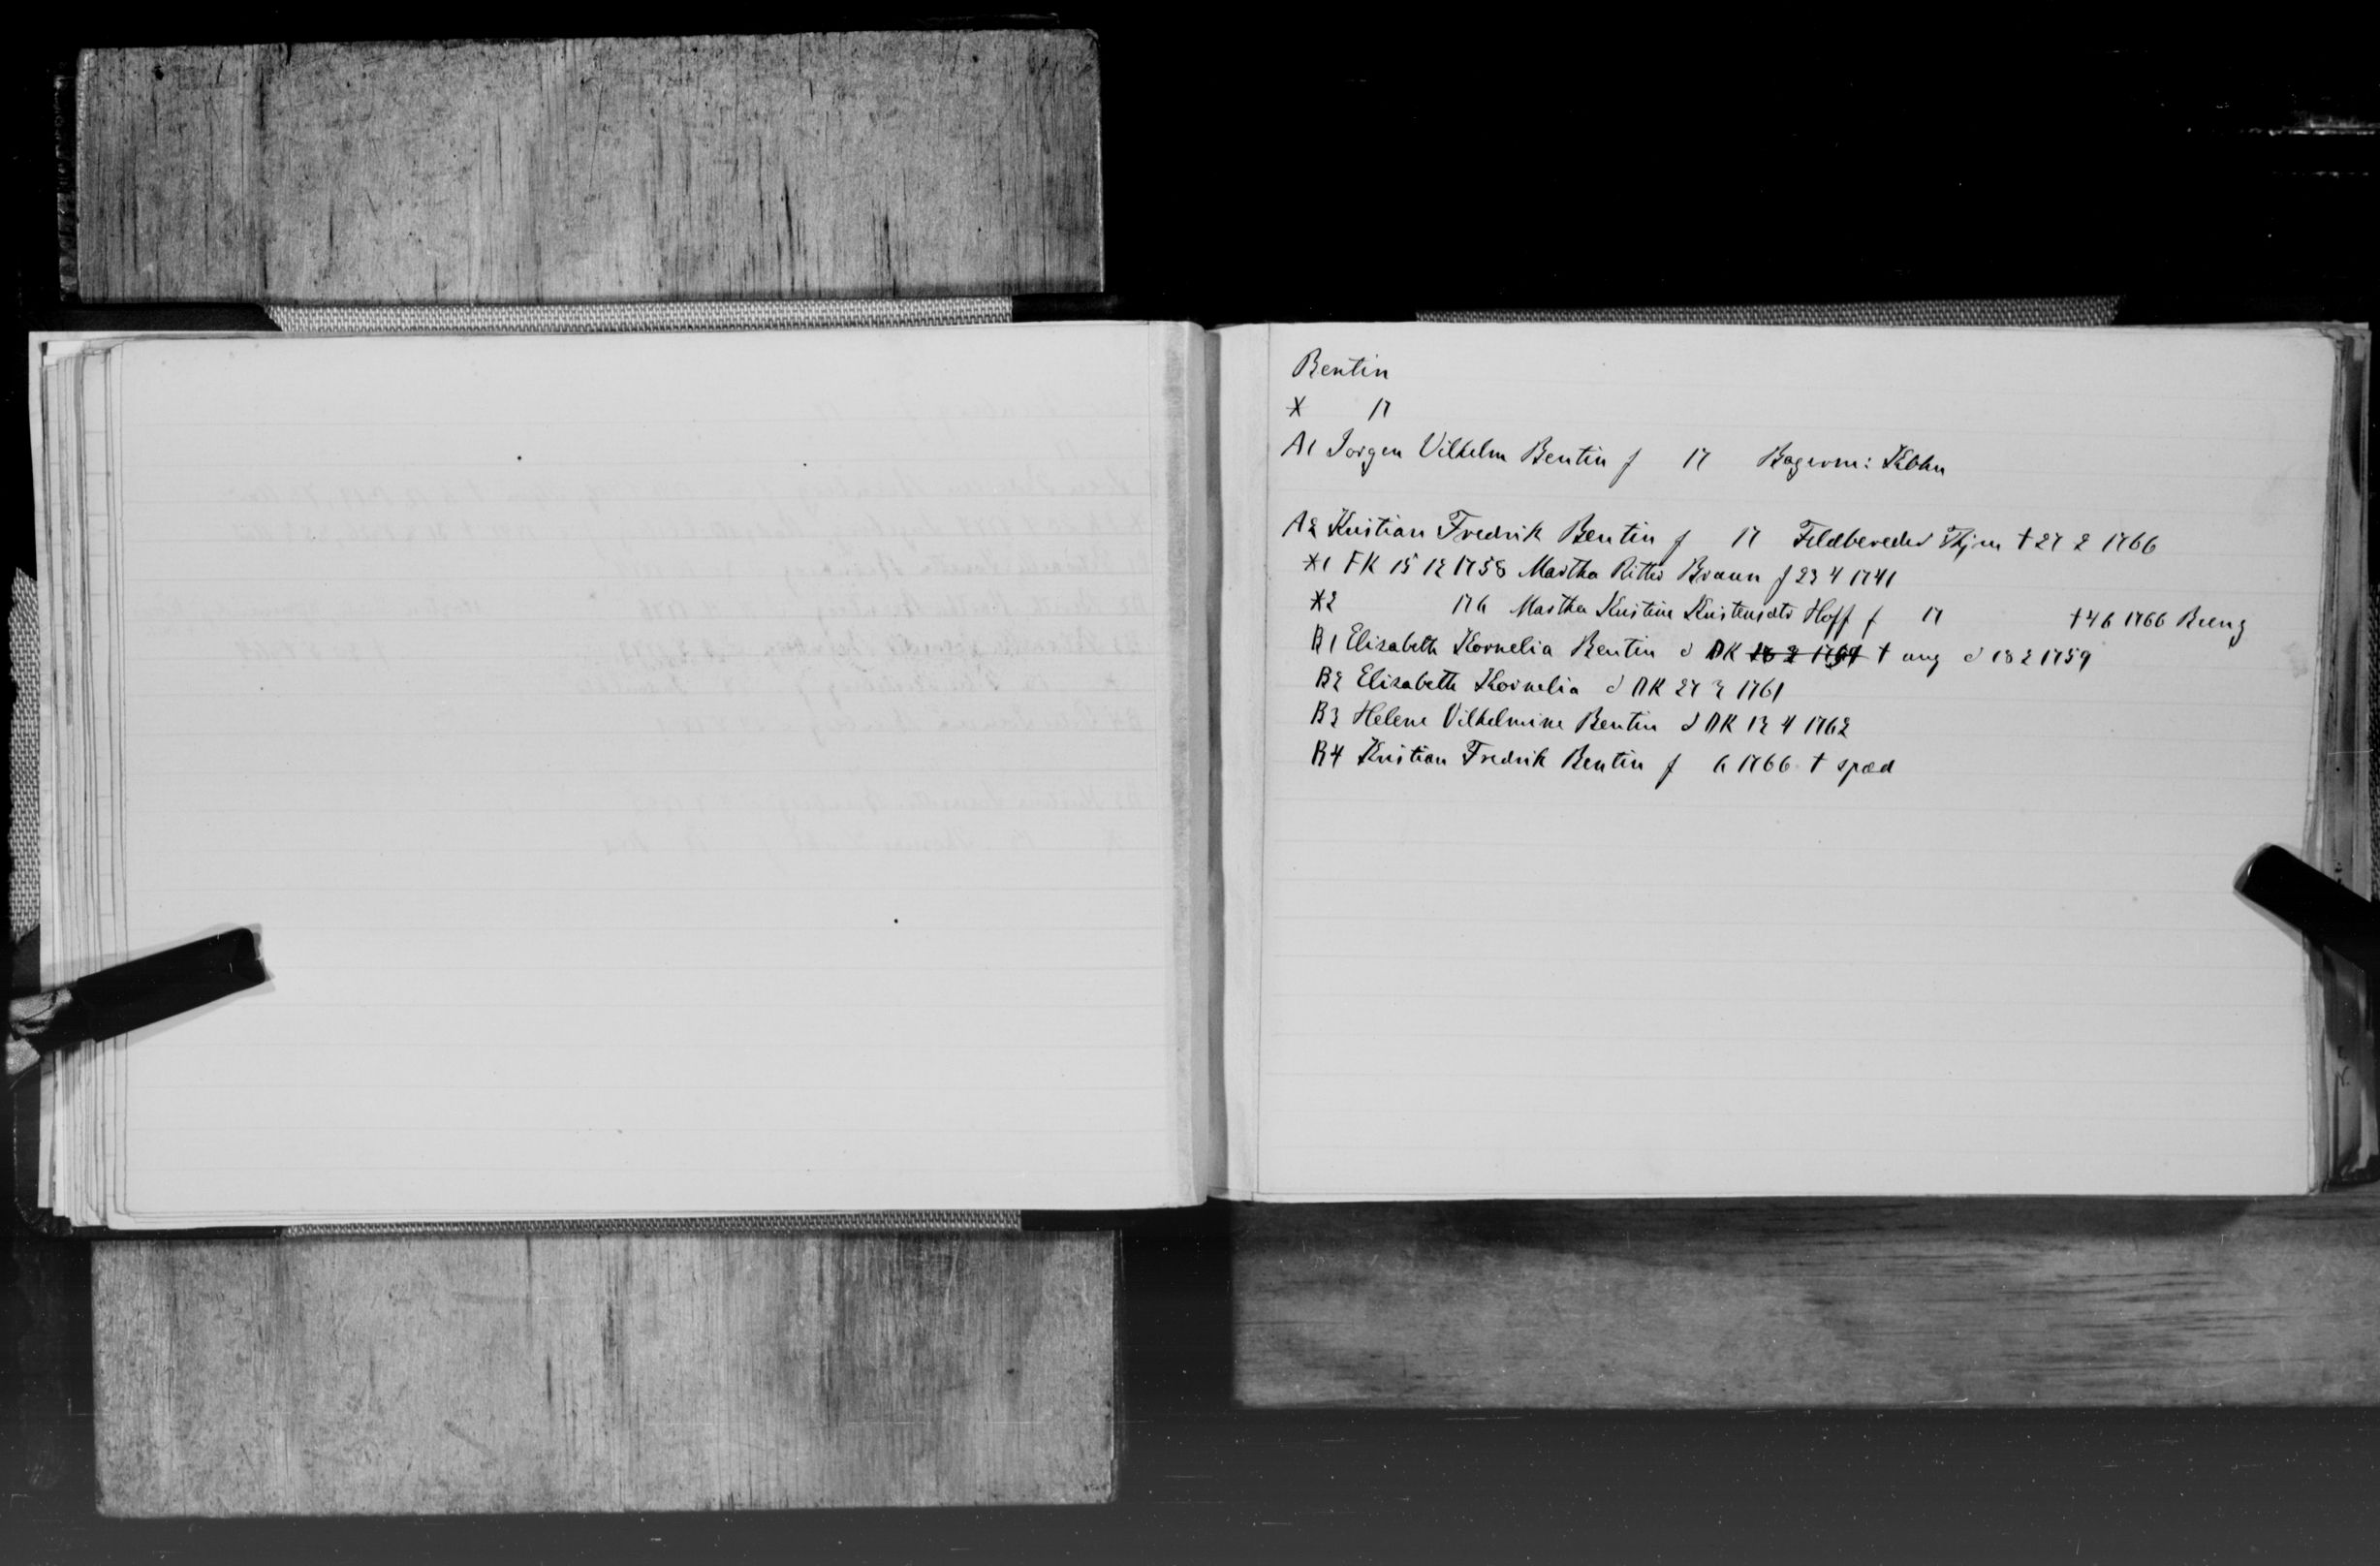 Bentin
X 17
A1 Jørgen Vilhelm Bentin f 17 Bagerm: Kbhn
A2 Kristian Fredrik Bentin f 17 Feldbereder Thjm † 27 2 1766
X1 FK 15 12 1758 Martha Ritter Braun f 23 4 1741
X2 176 Martha Kristine Kristensdtr Hoff f 17 † 4 6 1766
B1 Elisabeth Kornelia Bentin d DK † ung d 18 2 1759
B2 Elisabeth Kornelia d DK 27 3 1761
B3 Helene Vilhelmine Bentin d DK 13 4 1762
B4 Kristian Fredrik Bentin f 6 1766 † spæd